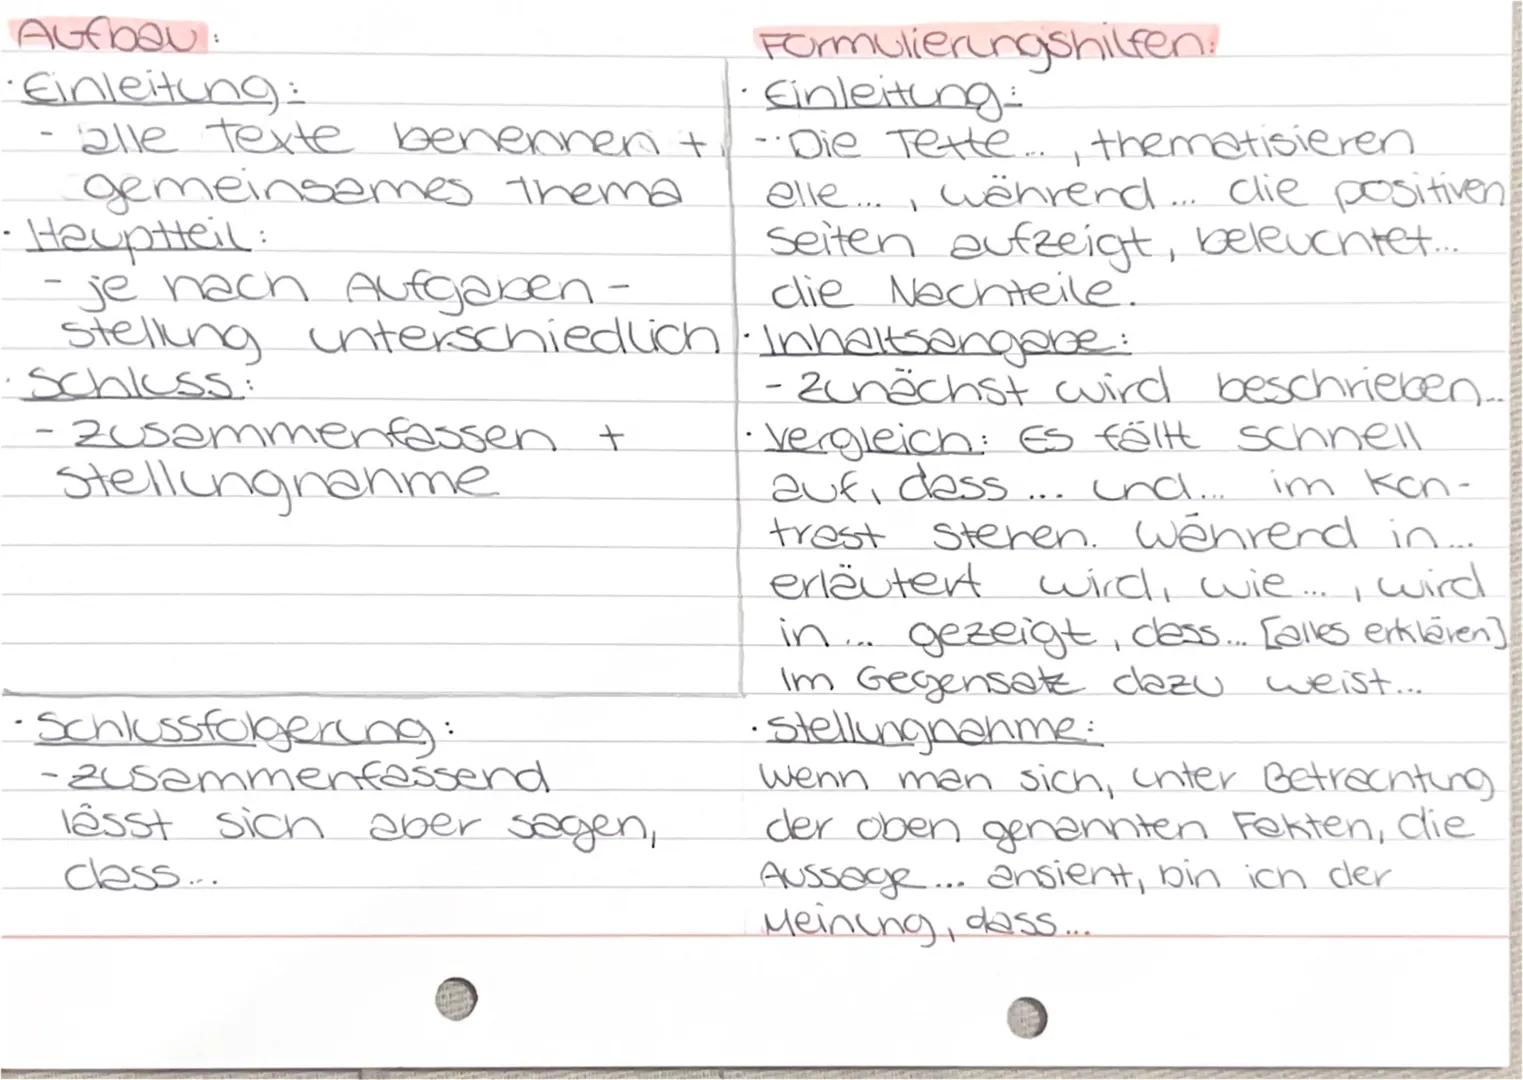 Aufbau:
· Einleitung:
- alle Texte benennen +
gemeinsames Thema
· Hauptteil:
- je nach Aufgaben-
stellung unterschiedlich
· Schluss:
- zusammenfassen +
stellungnahme
· Schlussfolgerung:
- zusammenfassend
lässt sich aber sagen,
dass...
Formulierungshilfen:
· Einleitung:
- Die Texte..., thematisieren
alle..., während... die positiven
Seiten aufzeigt, beleuchtet...
die Nachteile.
· Inhaltsangabe:
- Zunächst wird beschrieben...
· Vergleich: Es fällt schnell
auf, dass... und... im Kon-
trast stehen. Während in...
erläutert wird, wie..., wird
in... gezeigt, dass... [alles erklären]
Im Gegensatz dazu weist...
· Stellungnahme:
Wenn man sich, unter Betrachtung
der oben genannten Fakten, die
Aussage... ansieht, bin ich der
Meinung, dass...